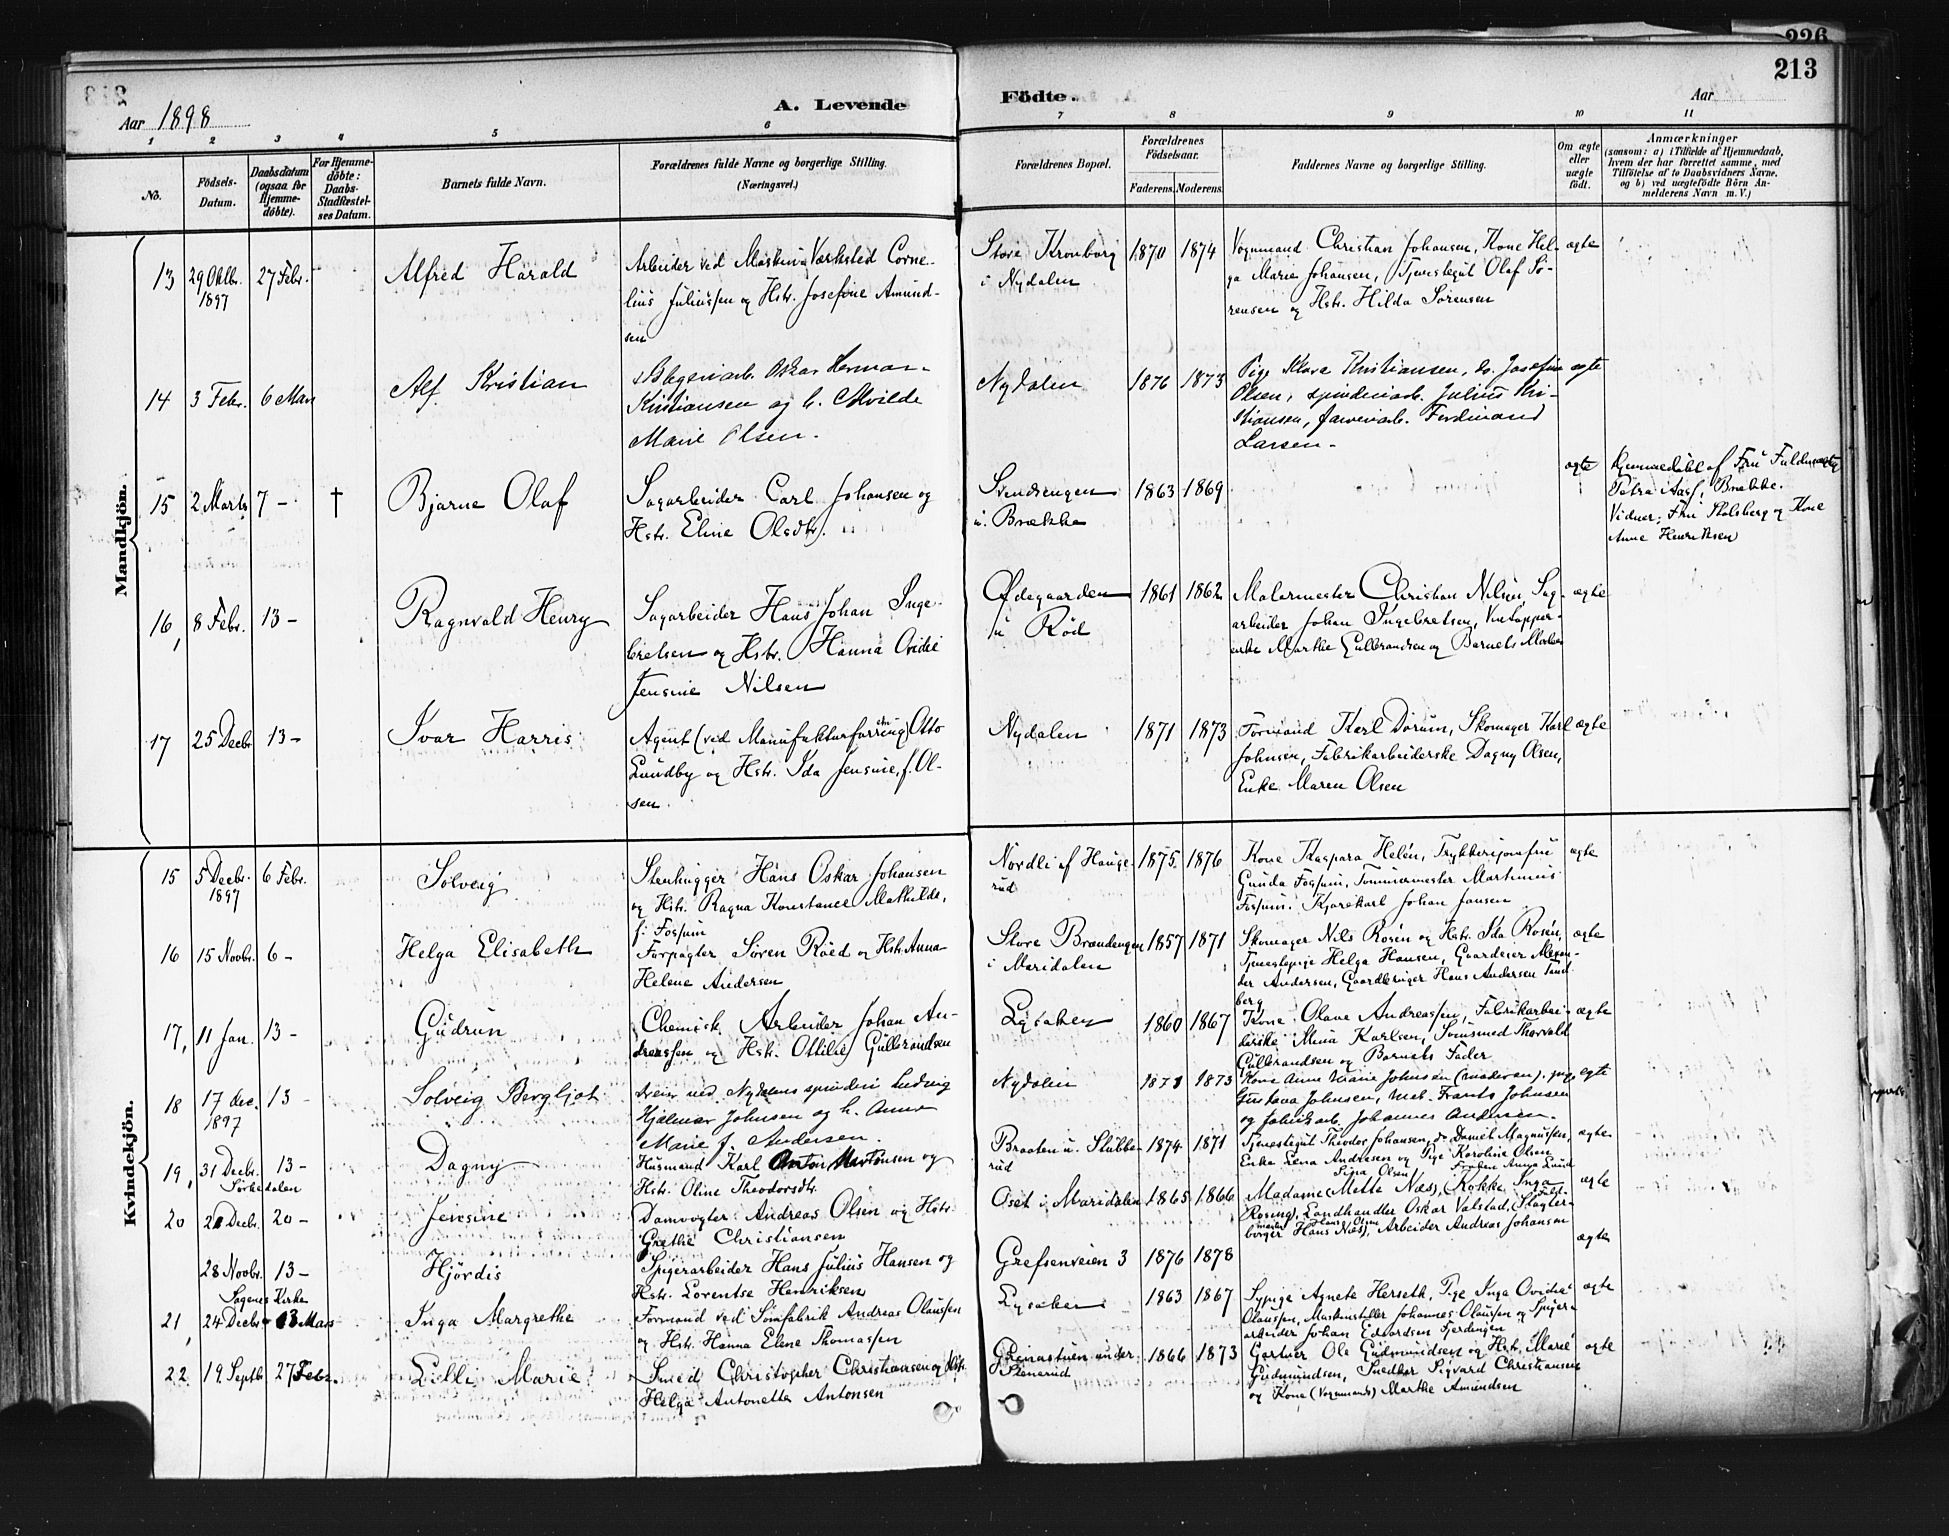 226
213
Aar 1898
A. Levende
Födte.
Aar
1 2 3 4 5 6 7 8 9 10 11
No.
Födsels-Datum.
Daabsdatum (ogsaa for Hjemme-döbte).
For Hjemme-döbte: Daabs-Stadfæstel-ses Datum.
Barnets fulde Navn.
Forældrenes fulde Navne og borgerlige Stilling.
(Næringsvei.)
Forældrenes Bopæl.
Forældrenes Födselsaar.
Faderens. Moderens.
Faddernes Navne og borgerlige Stilling.
Om ægte eller uægte födt.
Anmærkninger
(saasom: a) i Tilfælde af Hjemmedaab,
hvem der har forrettet samme, med
Tilföielse af to Daabsvidners Navne,
og b) ved uægtefödte Börn An-
melderens Navn m. V.)
Mandkjön.
13 29 Oktbr. 1897 27 Febr. Alfred Harald
Arbeider ved Maskin Værksted Corne-
lius Juliussen og Hstr. Josefine Amund-
sen
Store Kronborg
i Nydalen
1870 1874
Vognmand Christian Johansen, Kone Hel-
ga Marie Johansen, Tjenestegut Olaf Sö-
rensen og Hstr. Hilda Sörensen
ægte
14 3 Febr. 6 Mars Alf Kristian
Blegeriarb. Oskar Herman
Kristiansen og h. Alvilde
Marie Olsen.
Nydalen 1876 1873
Pige Klara Kristiansen, do. Josefine
Olsen, spinderiarb. Julius Kri-
stiansen, farveriarb. Ferdinand
Larsen.
ægte
15 2 Marts 7 - † Bjarne Olaf
Sagarbeider Carl Johansen og
Hstr. Eline Olsdtr.
Svendsengen
u. Brække
1863 1869
ægte
Hjemmedöbt af Fru Fuldmægtig
Petra Aas, Brække.
Vidner: Fru Stolsberg og Kone
Anne Henriksen
16, 8 Febr. 13 - Ragnvald Henry
Sagarbeider Hans Johan Inge-
bretsen og Hstr. Hanna Ovidie
Jensine Nilsen
Ødegaarden
u Röd
1861 1862
Malermester Christian Nilsen, Sag-
arbeider Johan Ingebretsen, Vintapper-
enke Marthe Gulbrandsen og Barnets Moder
ægte
17 25 Decbr 13 - Ivar Harris
Agent (ved Manufakturforretning) Otto
Lundby og Hstr. Ida Jensine, f. Ol-
sen.
Nydalen 1871 1873
Formand Karl Dörum, Skomager Karl
Johnsen, Fabrikarbeiderske Dagny Olsen,
Enke Maren Olsen
ægte
Kvindekjön.
15 5 Decbr. 1897 6 Febr. Solveig
Stenhugger Hans Oskar Johansen
og Hstr. Ragna Konstance Mathilde,
f. Fossum
Nordli af Hauge-
rud
1875. 1876
Kone Kaspara Helén, Trykkerijomfru
Gunda Fossum, Tömmermester Martinius
Fossum. Kjörekarl Johan Jansen
ægte
16 15 Novbr. 6 - Helga Elisabeth
Forpagter Sören Röed og Hstr. Anna
Helene Andersen
Store Brændengen
i Maridalen
1857 1871
Skomager Nils Rosén og Hstr. Ida Rosén,
Tjenestepige Helga Hansen, Gaardeier Alexan-
der Andersen, Gaardbruger Hans Andersen Tand
berg
ægte
17, 11 Jan. 13 - Gudrun
Chemisk Arbeider Johan An-
dreassen og Hstr. Ottilie Gulbrandsen
Lysaker 1860 1867
Kone Olave Andreassen, Fabrikarbei-
derske Mina Karlsen, Svensmed Thorvald
Gulbrandsen og Barnets Fader
ægte
18 17 dec. 1897 13 - Solveig Bergljot
dreier ved Nydalens spinderi Ludvig
Hjalmar Johnsen og h. Anna
Marie f. Andersen.
Nydalen 1871 1873
Kone Anne Marie Johnsen (moderen), pige
Gustava Johnsen, mek. Frants Johnsen
og fabrikarb. Johannes Andersen.
egte
19, 31 Decbr. 13 - Dagny
Sörkedalen
Husmand Karl Anton Martinsen og
Hstr. Oline Theodorsdtr.
Braaten u. Stubbe-
rud
1874 1871
Tjenestegut Theodor Johansen, do Daniel Magnussen,
Enke Lena Andresen og Pige Karoline Olsen
ægte
20 21 Decbr. 20 - Jensine
Damvogter Andreas Olsen og Hstr.
Grethe Christiansen
Oset i Maridalen 1865 1866
Sina Olsen Fröken Anna Lund
Madame (Mette Næs), Kokke Inga
Rosing), Landhandler Oskar Valstad, Slagter-
borger Hans Næs), Arbeider Andreas Johansen
ægte
28 Novbr. 13 - Hjördis
Sagenes Kirke
Spigerarbeider Hans Julius Hansen og
Hstr. Lorentse Henriksen
Grefsenveien 3 1876 1878
ægte
21, 24 Decbr 13 Mars Inga Margrethe
Formand ved Sömfabrik Andreas Olaussen
og Hstr. Hanna Eline Thomassen
Lysaker 1863 1867
Sypige Agnete Herseth, Pige Inga Ovidia
Olaussen, Maskinstiller Johannes Olaussen og Spiger-
arbeider Johan Edvardsen Fjerdingen
ægte
22 19 Septbr 27 Febr. Lilli Marie
Smed Christopher Christiansen og Hstr.
Helga Antonette Antonsen
Grinastuen under
Stenerud
1866 1873
Gartner Ole Gudmundsen og Hstr. Marie
Gudmundsen, Snedker Sigvard Christiansen
og Kone (Vognmands) Marthe Amundsen
ægte